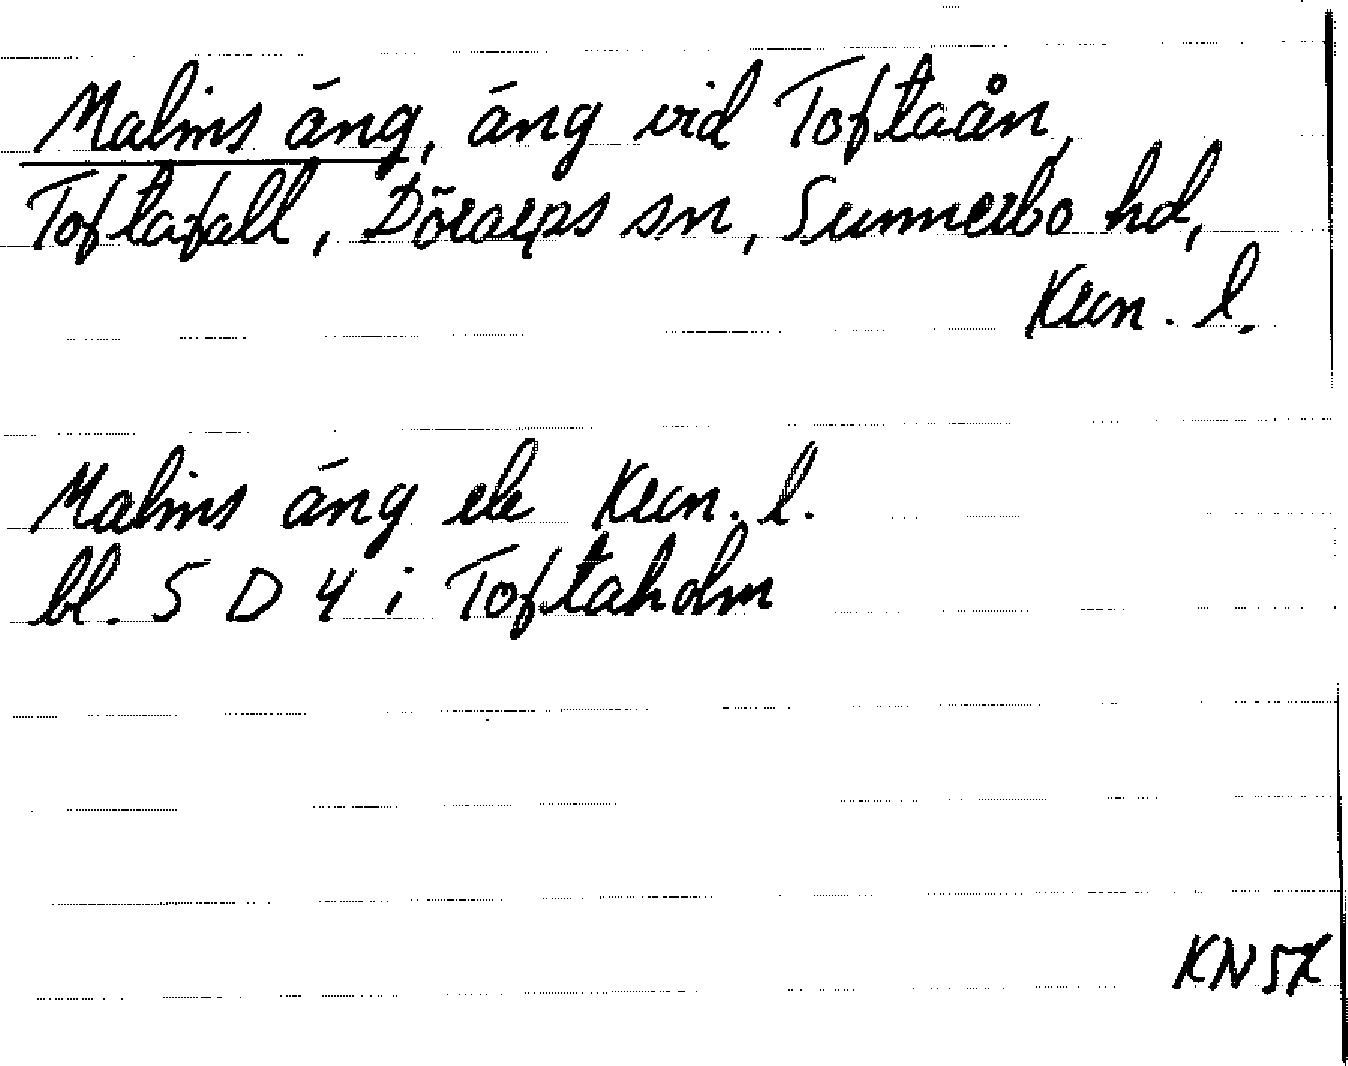 Malms äng, äng vid Toftaån,
Toftafall, Dörarps sn, Sunnerbo hd,
Kron. l.
Malms äng ek Kron. l.
bl. 5 D 4 i Toftaholm